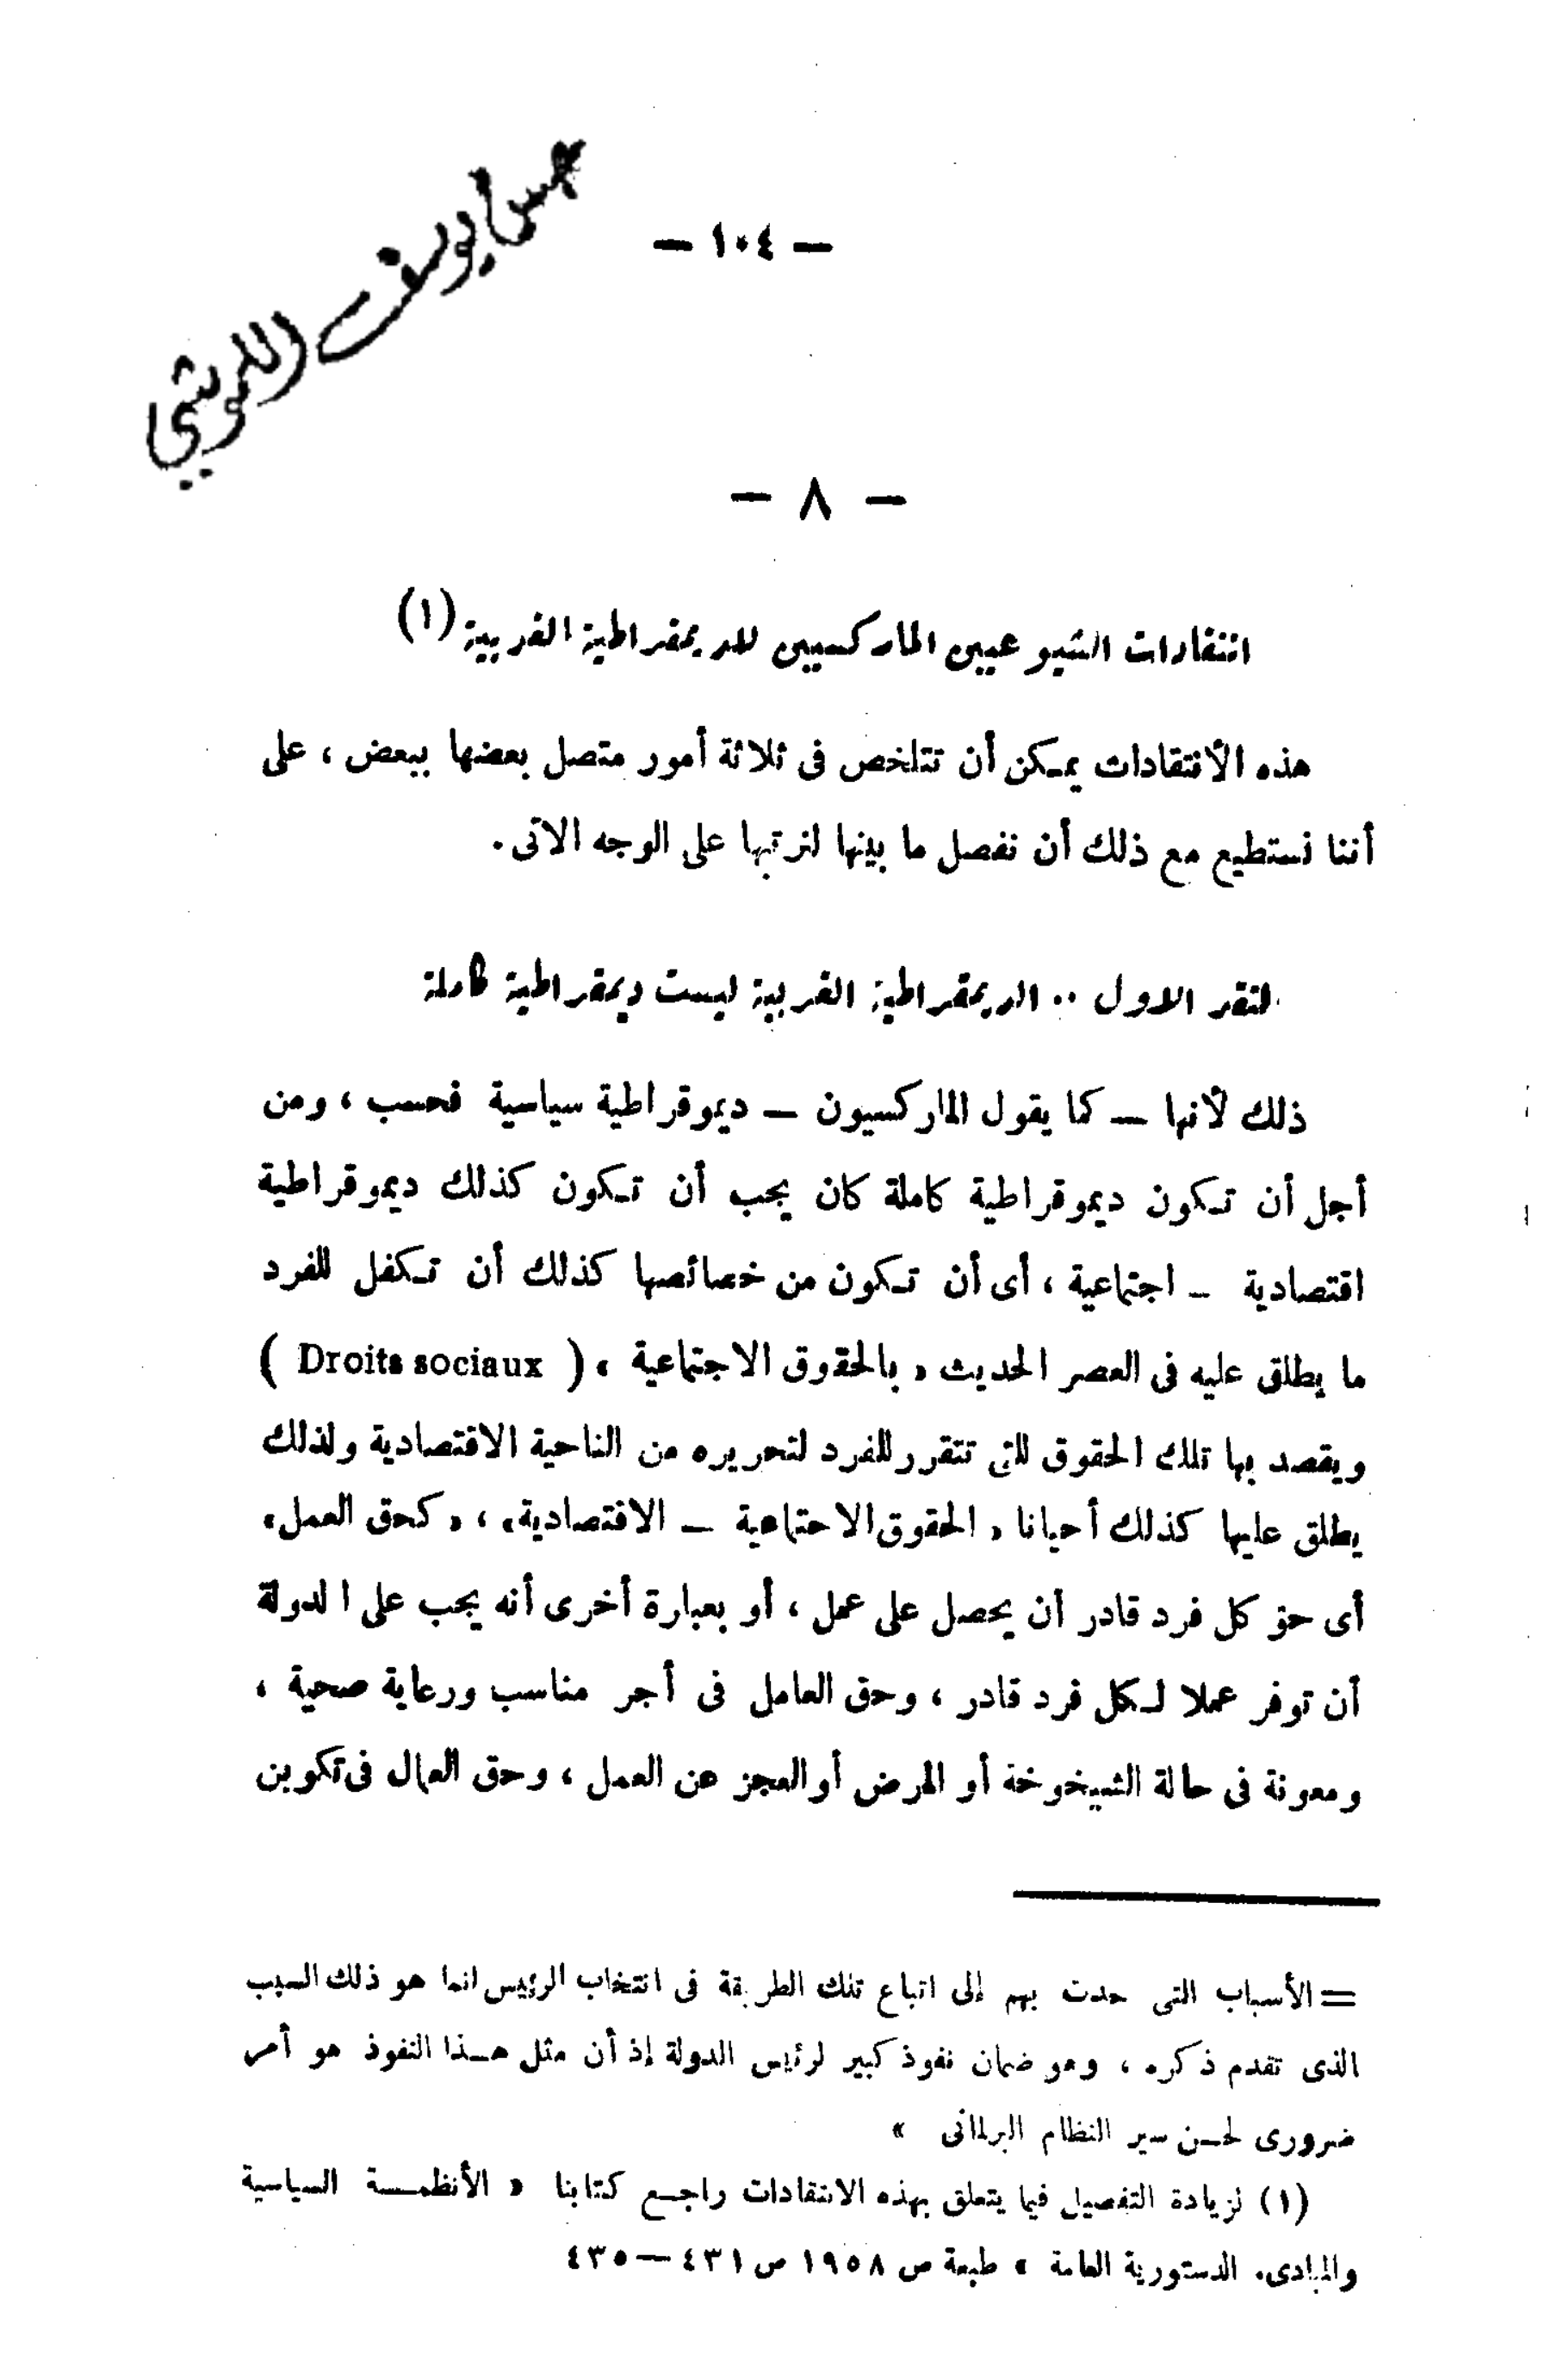 — ١٠٤ —
يوسف
— ٨ —
انتقادات الشيوعيين الماركسيين للديمقراطية الغربية (١)
هذه الانتقادات يمكن أن تتلخص فى ثلاثة أمور متصل بعضها ببعض ، على
أننا نستطيع مع ذلك أن نفصل ما بينها لنرتبها على الوجه الآتى .
لنقد الاول .. الديمقراطية الغربية ليست ديمقراطية كاملة
ذلك لأنها — كما يقول الماركسيون — ديموقراطية سياسية فحسب ، ومن
أجل أن تكون ديموقراطية كاملة كان يجب أن تكون كذلك ديموقراطية
اقتصادية – اجتماعية ، أى أن تكون من خصائصها كذلك أن تكفل للفرد
ما يطلق عليه فى العصر الحديث « بالحقوق الاجتماعية » ( Droits sociaux )
ويقصد بها تلك الحقوق للتى تتقرر للفرد لتحريره من الناحية الاقتصادية ولذلك
يطلق عليها كذلك أحيانا « الحقوق الاجتماعية – الاقتصادية » ، « كحق العمل »
أى حق كل فرد قادر أن يحصل على عمل ، أو بعبارة أخرى أنه يجب على الدولة
أن توفر عملا لكل فرد قادر ، وحق العامل فى أجر مناسب ورعاية صحية ،
ومعونة فى حالة الشيخوخة أو المرض أو العجز عن العمل ، وحق العمال فى تكوين
= الأسباب التى حدت بهم إلى اتباع تلك الطريقة فى انتخاب الرئيس انما هو ذلك السبب
الذى تقدم ذكره ، وهو ضمان نفوذ كبير لرئيس الدولة إذ أن مثل هذا النفوذ هو أمر
ضرورى لحسن سير النظام البرلمانى »
(١) لزيادة التفصيل فيما يتعلق بهذه الانتقادات راجع كتابنا « الأنظمة السياسية
والمبادىء الدستورية العامة » طبعة ص ١٩٥٨ ص ٤٣١ — ٤٣٥